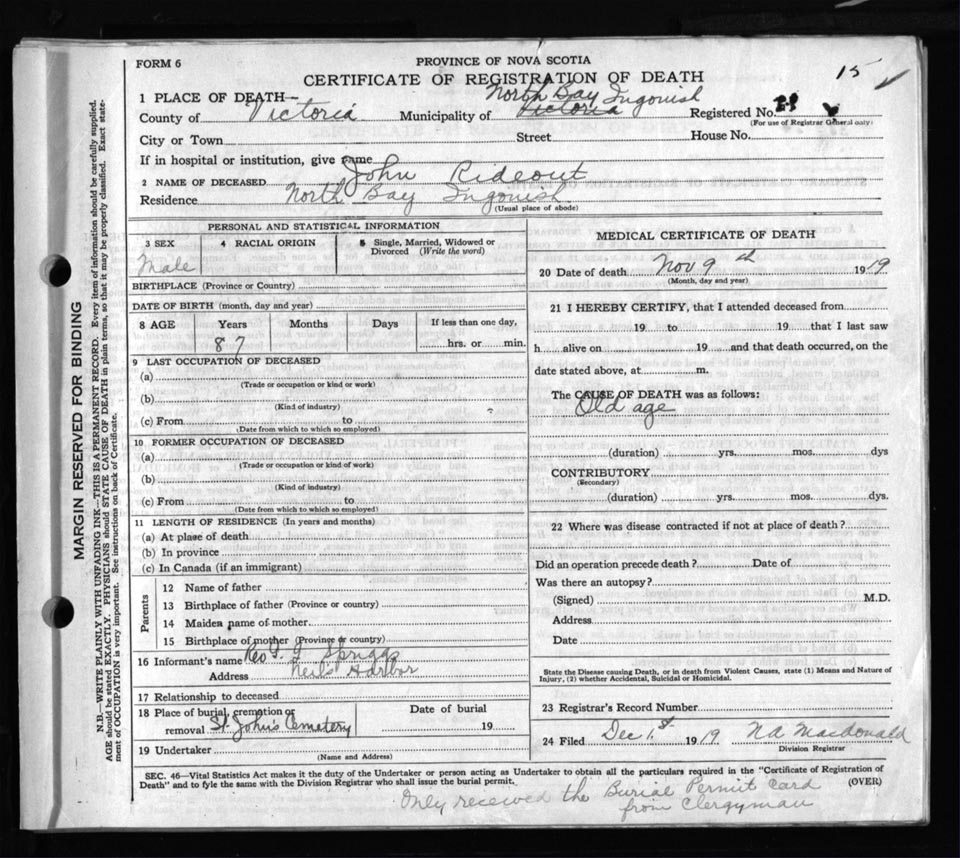 FORM 6
PROVINCE OF NOVA SCOTIA
15
CERTIFICATE OF REGISTRATION OF DEATH
1 PLACE OF DEATH—
North Bay Ingonish
County of Victoria Municipality of Victoria Registered No.
(For use of Registrar General only)
City or Town Street House No.
If in hospital or institution, give name
2 NAME OF DECEASED John Rideout
Residence North Bay Ingonish
(Usual place of abode)
PERSONAL AND STATISTICAL INFORMATION
3 SEX 4 RACIAL ORIGIN 5 Single, Married, Widowed or Divorced (Write the word)
Male
BIRTHPLACE (Province or County)
DATE OF BIRTH (month, day and year)
8 AGE Years Months Days If less than one day,
87 hrs. or min.
9 LAST OCCUPATION OF DECEASED
(a)
(Trade or occupation or kind or work)
(b)
(Kind of industry)
(c) From to
(Date from which to which so employed)
10 FORMER OCCUPATION OF DECEASED
(a)
(Trade or occupation or kind of work)
(b)
(Kind of industry)
(c) From to
(Date from which to which so employed)
11 LENGTH OF RESIDENCE (In years and months)
(a) At place of death
(b) In province
(c) In Canada (if an immigrant)
Parents
12 Name of father
13 Birthplace of father (Province or county)
14 Maiden name of mother
15 Birthplace of mother (Province or county)
16 Informant's name Rev T. J Spriggs
Address Neil's Harbor
17 Relationship to deceased
18 Place of burial, cremation or Date of burial
removal St. John's Cemetery 19
19 Undertaker
(Name and Address)
MEDICAL CERTIFICATE OF DEATH
20 Date of death Nov 9th 1919
(Month, day and year)
21 I HEREBY CERTIFY, that I attended deceased from
19 to 19 that I last saw
h alive on 19 and that death occurred, on the
date stated above, at m.
The CAUSE OF DEATH was as follows:
Old age
(duration) yrs. mos. dys
CONTRIBUTORY
(Secondary)
(duration) yrs. mos. dys.
22 Where was disease contracted if not at place of death?
Did an operation precede death? Date of
Was there an autopsy?
(Signed) M.D.
Address
Date
State the Disease causing Death, or in death from Violent Causes, state (1) Means and Nature of
Injury, (2) whether Accidental, Suicidal or Homicidal.
23 Registrar's Record Number
24 Filed Dec 1st 1919 N A Macdonald
Division Registrar
SEC. 46—Vital Statistics Act makes it the duty of the Undertaker or person acting as Undertaker to obtain all the particulars required in the "Certificate of Registration of
Death" and to fyle the same with the Division Registrar who shall issue the burial permit. (OVER)
Only received the Burial Permit Card
from Clergyman
MARGIN RESERVED FOR BINDING
N.B.—WRITE PLAINLY WITH UNFADING INK—THIS IS A PERMANENT RECORD. Every item of information should be carefully supplied.
AGE should be stated EXACTLY. PHYSICIANS should STATE CAUSE OF DEATH in plain terms, so that it may be properly classified. Exact state-
ment of OCCUPATION is very important. See instructions on back of Certificate.